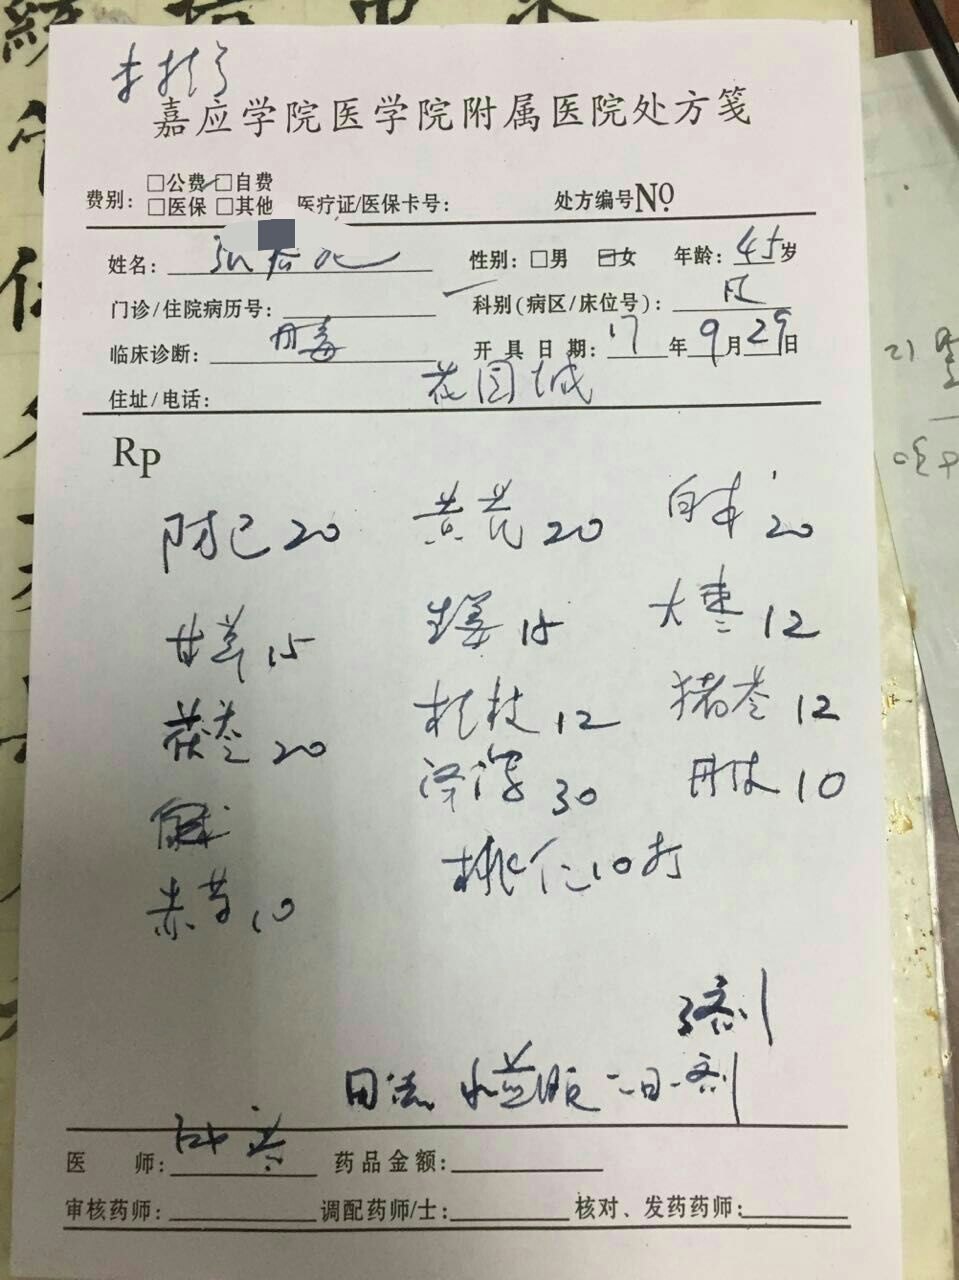 嘉应学院医学院附属医院处方笺
费别: □公费 □自费
□医保 □其他 医疗证/医保卡号: 处方编号No.
姓名: 性别: □男 □女 年龄: 45岁
门诊/住院病历号: 科别(病区/床位号):
临床诊断: 丹毒 开具日期: 17年9月29日
住址/电话: 花园城
Rp
防己20 黄芪20 白术20
甘草15 生姜15 大枣12
茯苓20 桂枝12 猪苓12
泽泻30 丹皮10
赤芍10 桃仁10打
3剂
用法 水煎服 一日一剂
医师: 药品金额:
审核药师: 调配药师/士: 核对、发药药师: